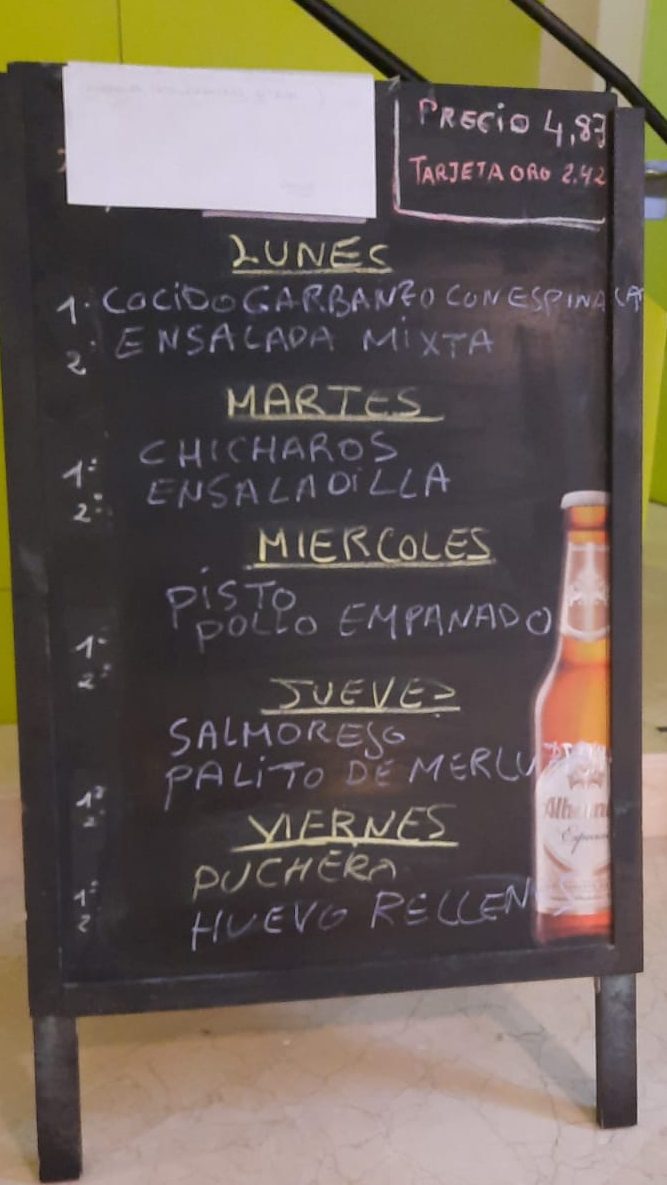 PRECIO 4,87
TARJETA ORO 2.42
LUNES
1º COCIDO GARBANZO CON ESPINACAS
2º ENSALADA MIXTA
MARTES
1º CHICHAROS
2º ENSALADILLA
MIERCOLES
1º PISTO
2º POLLO EMPANADO
JUEVES
1º SALMOREJO
2º PALITO DE MERLU
VIERNES
1º PUCHERA
2º HUEVO RELLENO
Alham
Especial